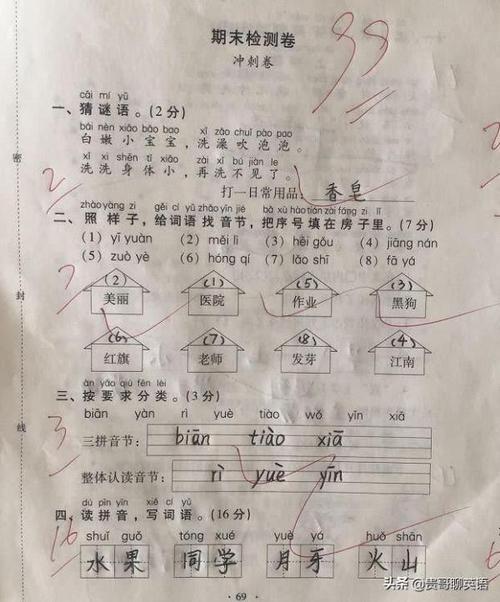 期末检测卷
99
冲刺卷
cāi mí yǔ
一、猜谜语。(2分)
bái nèn xiǎo bǎo bao xǐ zǎo chuī pào pao
白嫩小宝宝,洗澡吹泡泡。
xǐ xi shēn tǐ xiǎo zài xǐ bú jiàn le
洗洗身体小,再洗不见了。
2
打一日常用品:香皂
zhào yàng zi gěi cí yǔ zhǎo yīn jié bǎ xù hào tián zài fáng zi lǐ
二、照样子,给词语找音节,把序号填在房子里。(7分)
(1) yī yuàn (2) měi lì (3) hēi gǒu (4) jiāng nán
(5) zuò yè (6) hóng qí (7) lǎo shī (8) fā yá
7
(2) (1) (5) (3)
美丽 医院 作业 黑狗
(6) (7) (8) (4)
红旗 老师 发芽 江南
àn yāo qiú fēn lèi
三、按要求分类。(3分)
biān yàn rì yuè tiào wǒ yīn xiā
3
三拼音节: biān tiào xiā
整体认读音节: rì yuè yīn
dú pīn yīn xiě cí yǔ
四、读拼音,写词语。(16分)
16
shuǐ guǒ tóng xué yuè yá huǒ shān
水果 同学 月牙 火山
·69·
密
封
线
头条 @贵哥聊英语